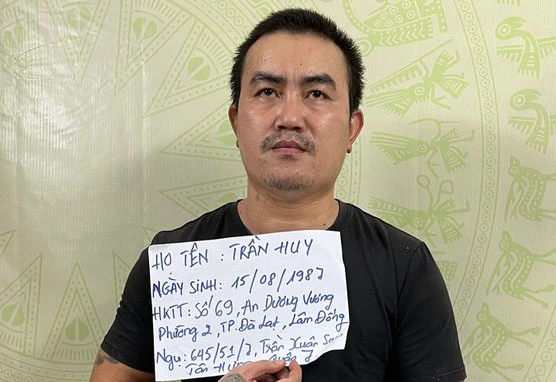 HỌ TÊN : TRẦN HUY
NGÀY SINH: 15/08/1987
HKTT: Số 69, An Dương Vương
Phường 2, TP. Đà Lạt, Lâm Đồng
Ngụ: 645/51/2, Trần Xuân
Tân